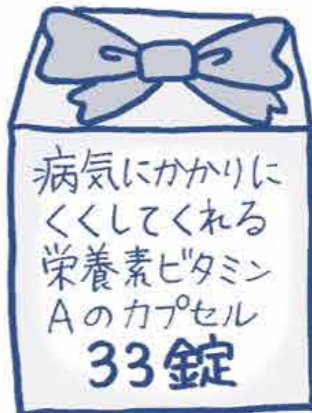 病気にかかりに
くくしてくれる
栄養素ビタミン
Aのカプセル
33錠